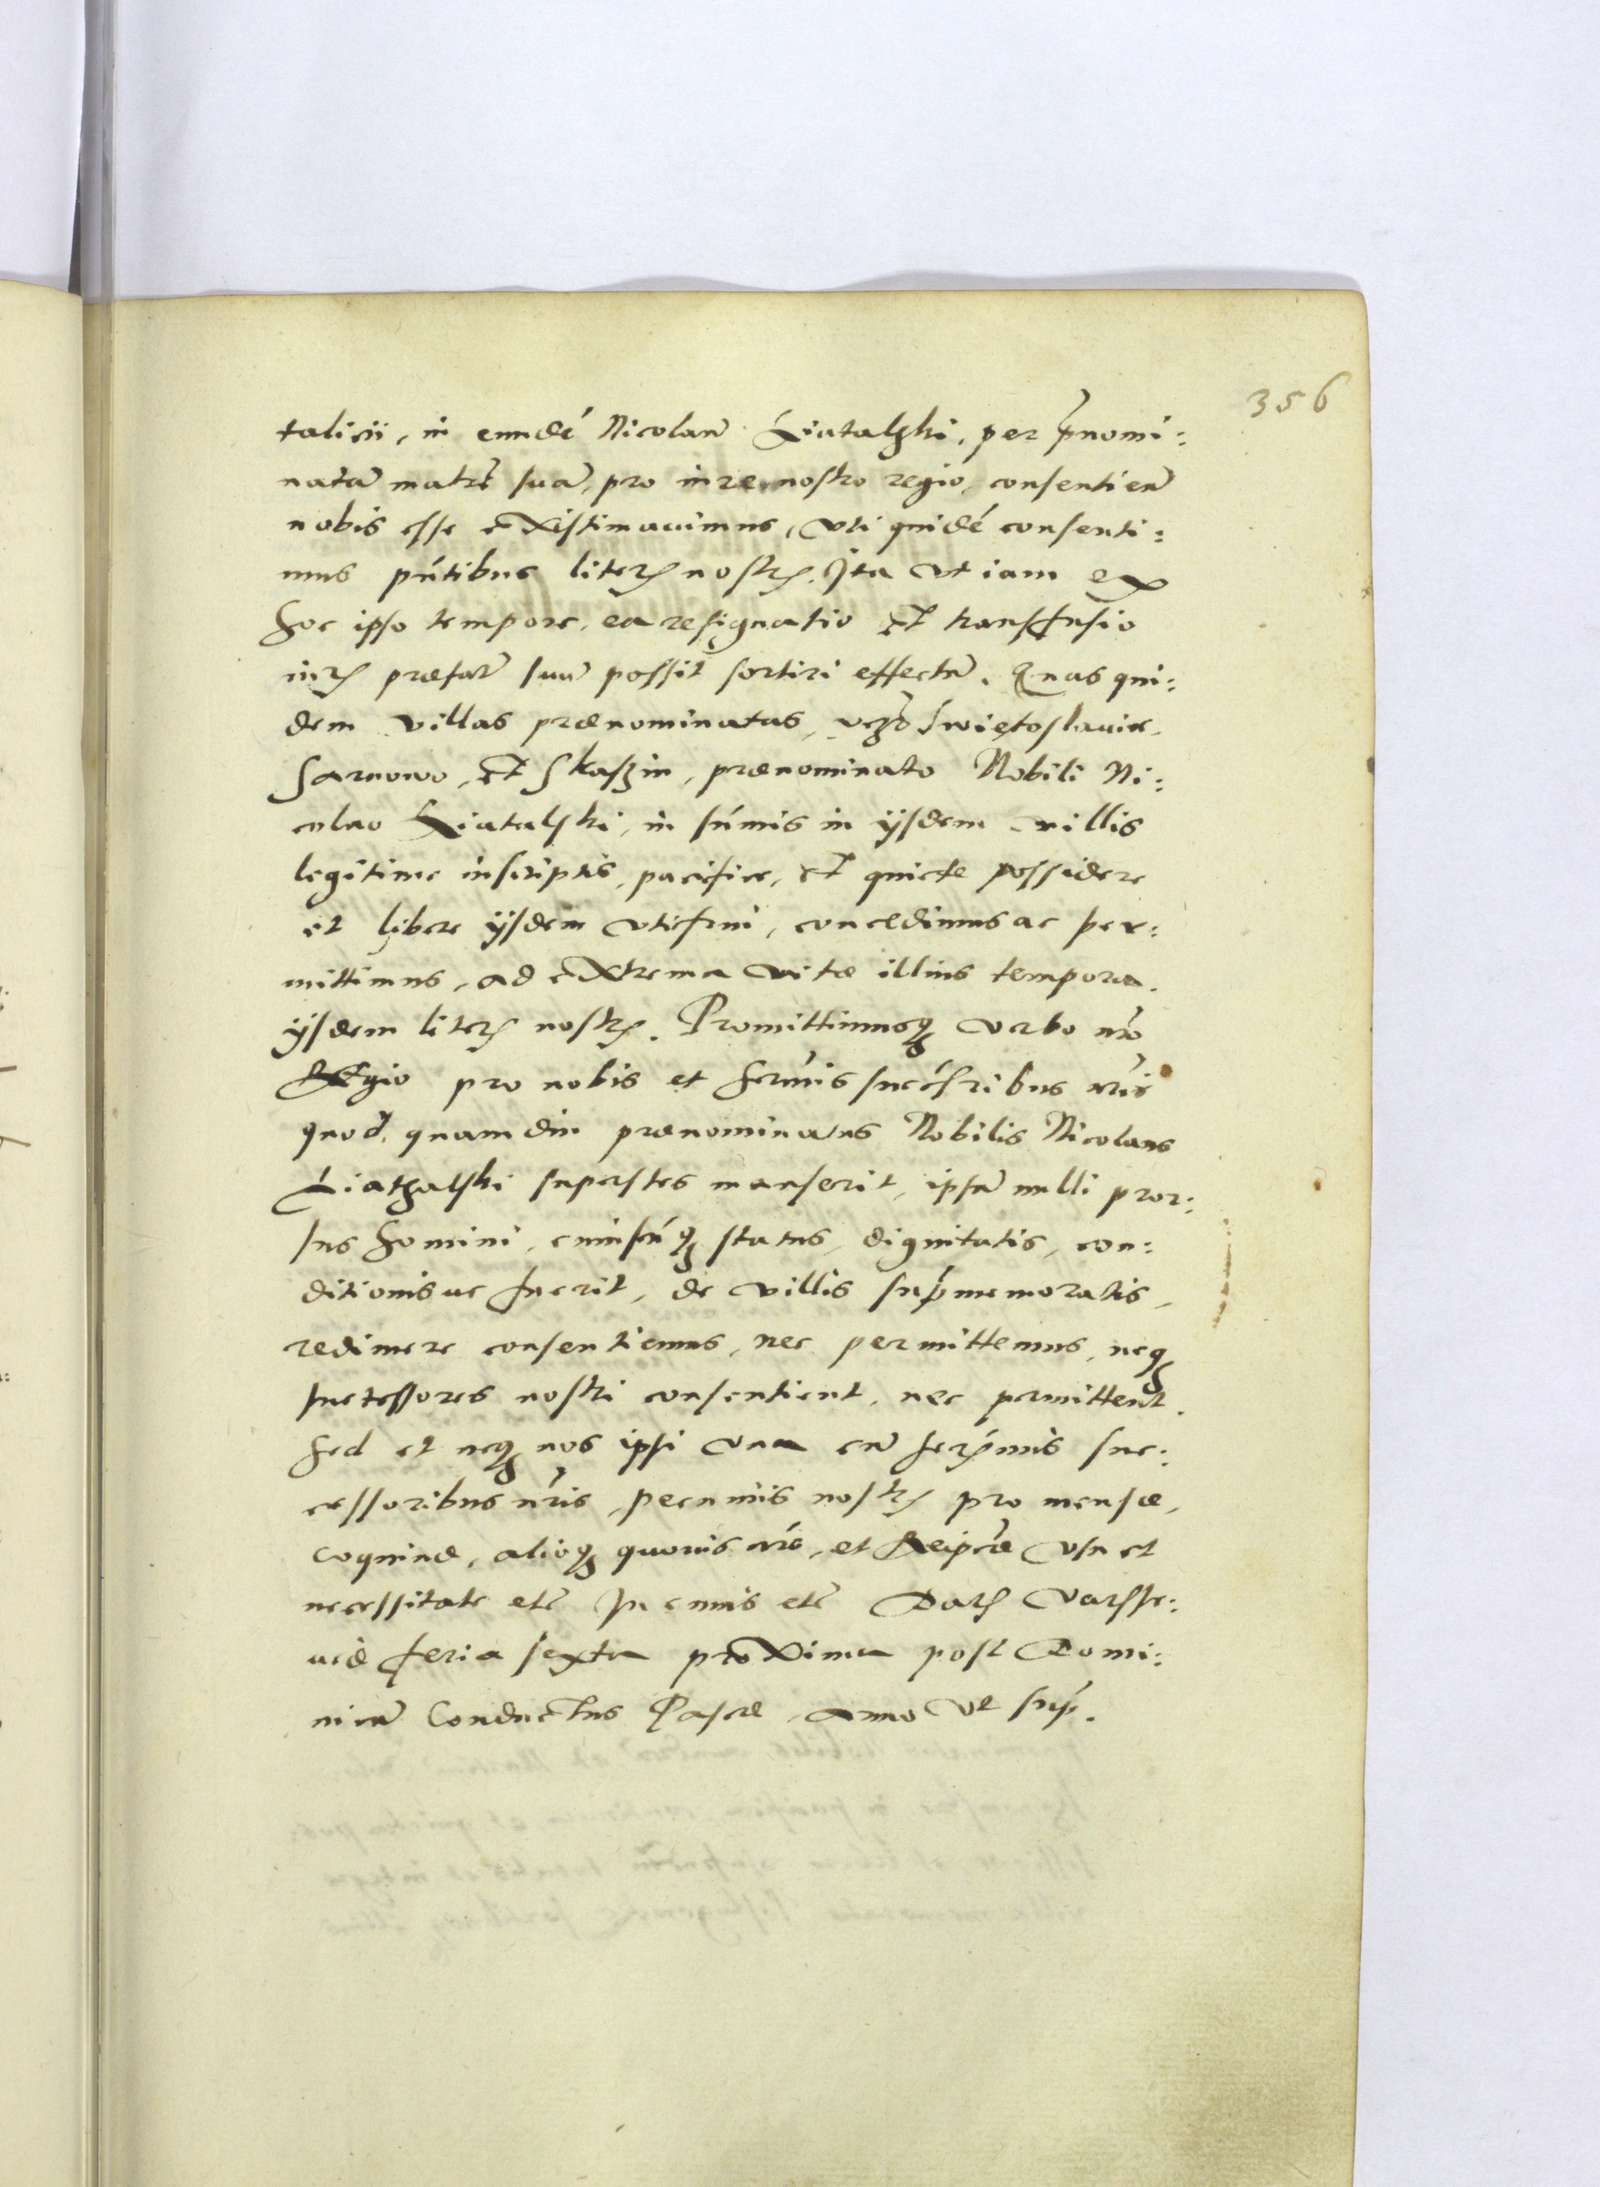 356
talicii, in eundé Nicolaũ Liatalski, per p̃nomi:
natã matrẽ suã, pro iure nostro regio, consentienẽ
nobis esse existimauimus, vti quidé consenti:
mus pñtibus literis nostris. Ita vt iam ex
hoc ipso tempore, ea resignatio et transfusio
iuris præfatĩ suũ possit sortiri effectũ. Quas qui:
dem villas prænominatas, vcz Swiętoslauice,
Sarnowo, et Skaszin, prænominato Nobili Ni:
colao Liatalski, in sũmis in ijsdem villis
legitime inscriptis, pacifice, et quiete possidere
et libere ijsdem vtifrui, concedimus ac per:
mittimus, ad extrema vitæ illius tempora.
ijsdem literis nostris. Promittimusq verbo nr̃o
Regio pro nobis et serm̃is succ̃sribus nr̃is
quod, quamdiu prænominatus Nobilis Nicolaus
Liatzalski superstes manserit, ipsũ nulli pror:
sus homini, cuiuscũq status, dignitatis, con:
ditionisue fuerit, de villis sup̃memoratis,
redimere consentiemus, nec permittemus, neq
successores nostri consentient, nec permittent.
Sed et neq nos ipsi vna cũ serm̃is suc:
cessoribus nr̃is, pecuniis nostris pro mensæ,
coquinæ, alioq quouis nr̃o, et Reipcæ vsu et
necessitate etc̃ In cuius etc̃ Datis Varsse:
uiæ feria sexta proxima post Domi:
nicã Conductus Pascæ, anno vt sup̃.